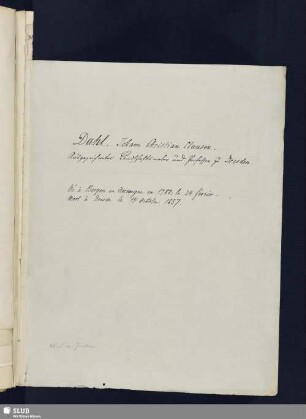 Dahl. Johann Christian Clausen.
Ausgezeichneter Landschaftsmaler und Professor zu Dresden.
Né à Bergen en Norwegue en 1788. le 24 février.
Mort à Dresde le 14 Octobre 1857.
SLUB
Wir führen Wissen.